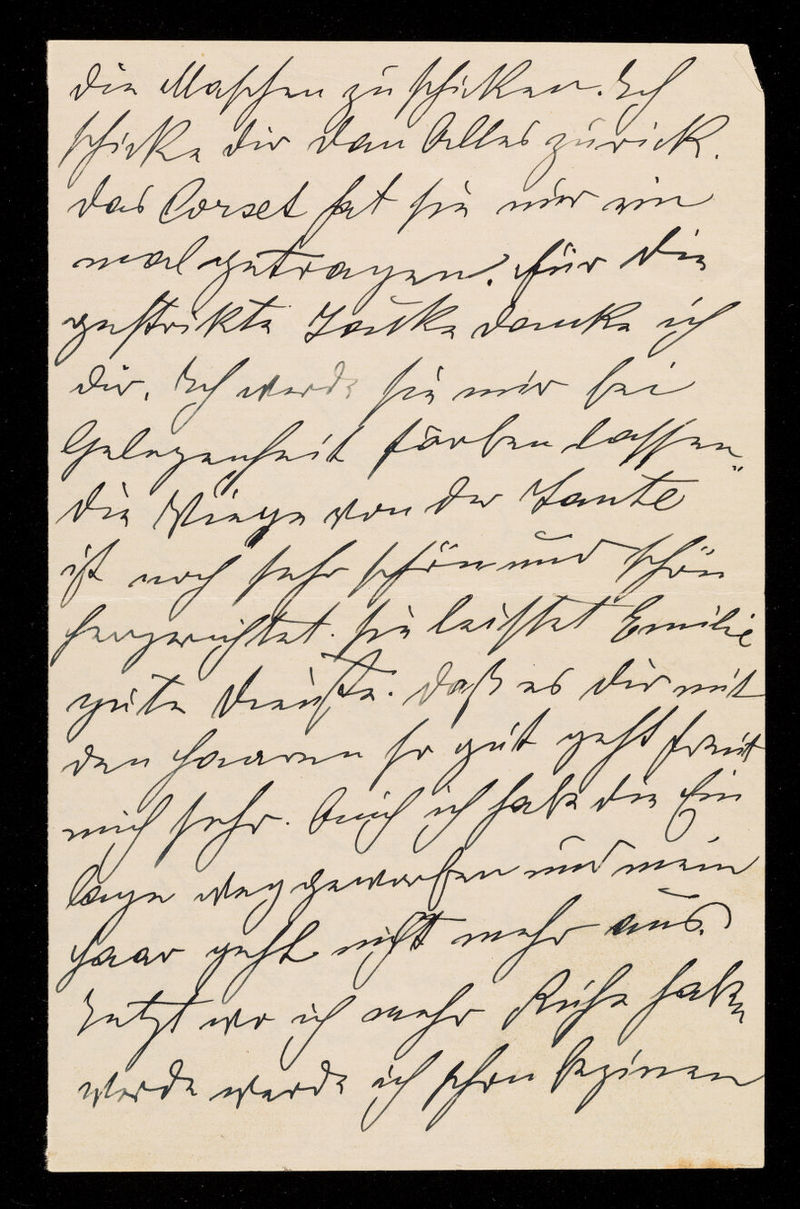 die Maschen zu schicken. Ich
schicke dir dan Alles zurick.
das Corset hat sie nur ein
mal getragen. für die
gestrikte Jacke danke ich
dir. Ich werde sie mir bei
Gelegenheit färben lassen.
die Wiege von der Tante
ist noch sehr schön und schön
hergerichtet. sie leistet Emilie
gute Dienste. daß es dir mit
den Haaren so gut geht freut
mich sehr. Auch ich habe die Ein
lage weggeworfen und mein
Haar geht nicht mehr aus.
Jetzt wo ich mehr Ruhe haben
werde werde ich schon beginen